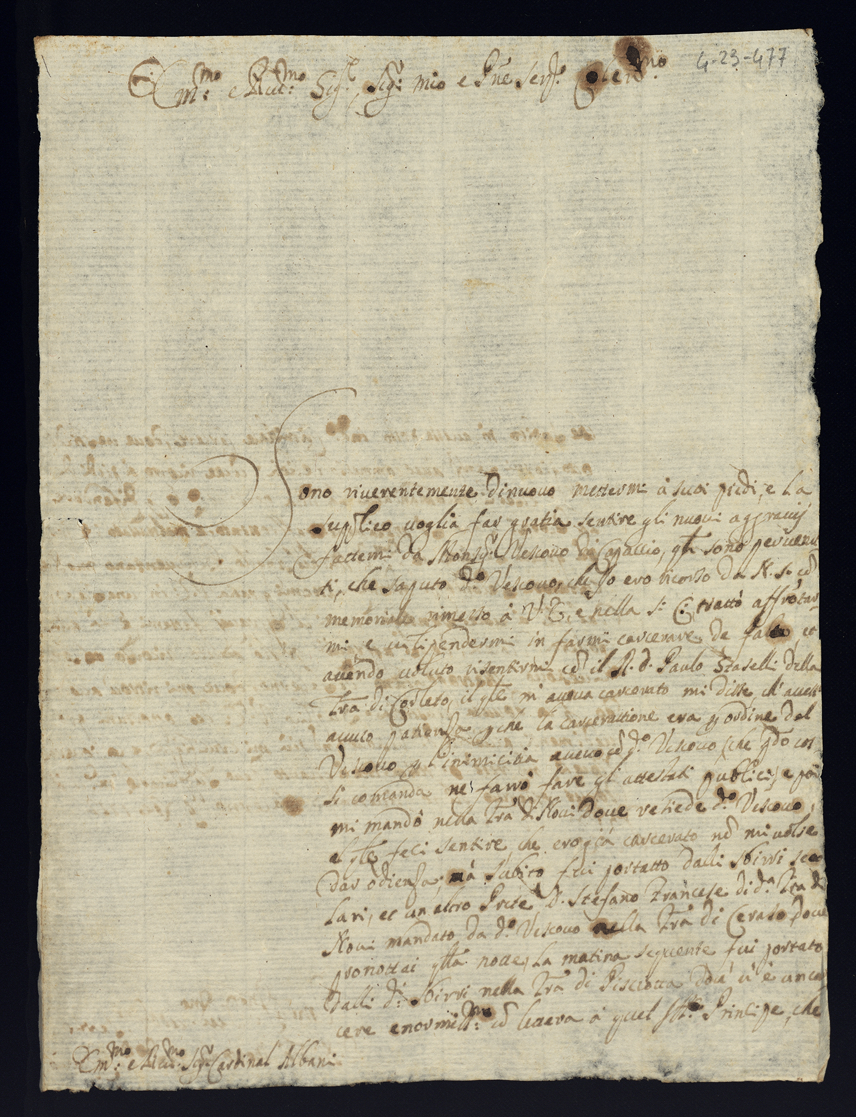 4-23-477
Em.mo e Rev.mo Sig.re Sig.r mio e P.ne Ser.
Sono riverentemente dinuovo mettermi à suoi piedi, e La
supplico voglia far gratia sentire gli nuovi aggravij
fattemi da Mons.r Vescovo di Capaccio, q.li sono pervenu-
ti, che saputo d.o Vescovo, ch'Io ero ricorso da N. S. cõ
memoriale rimesso à V. E. e nella S. C. trattò affrõtar
mi e vilipendermi in farmi carcerare de facto et
avendo voluto risentirmi cõ il R. D. Paulo Staselli della
Trã di Corleto, il q.le m'aveva carcerato mi disse ch'avesse
avuto patienza, che la carceratione era p ordine del
Vescovo, p l'inimicitia avevo cõ d.o Vescovo, che
si comanda ne farrò fare gl'attestati publici, e poi
mi mandò nella Trã di Novi dove resiede d.o Vescovo,
al q.le feci sentire che ero già carcerato nõ mi volse
dar odienza, mà subito fui portato dalli sbirri
lari, et un altro Prete D. Stefano Francese di d.a Trã di
Novi mandato da d.o Vescovo nella Trã di Ceraso dove
pronottai q.lla notte, La matina seguente fui portato
dalli d.i sbirri nella Trã di Pisciotta dov'è un car
cere enormiss.mo cõ lettera à quel Principe, che
Em.mo e Rev.mo Sig.r Cardinal Albani